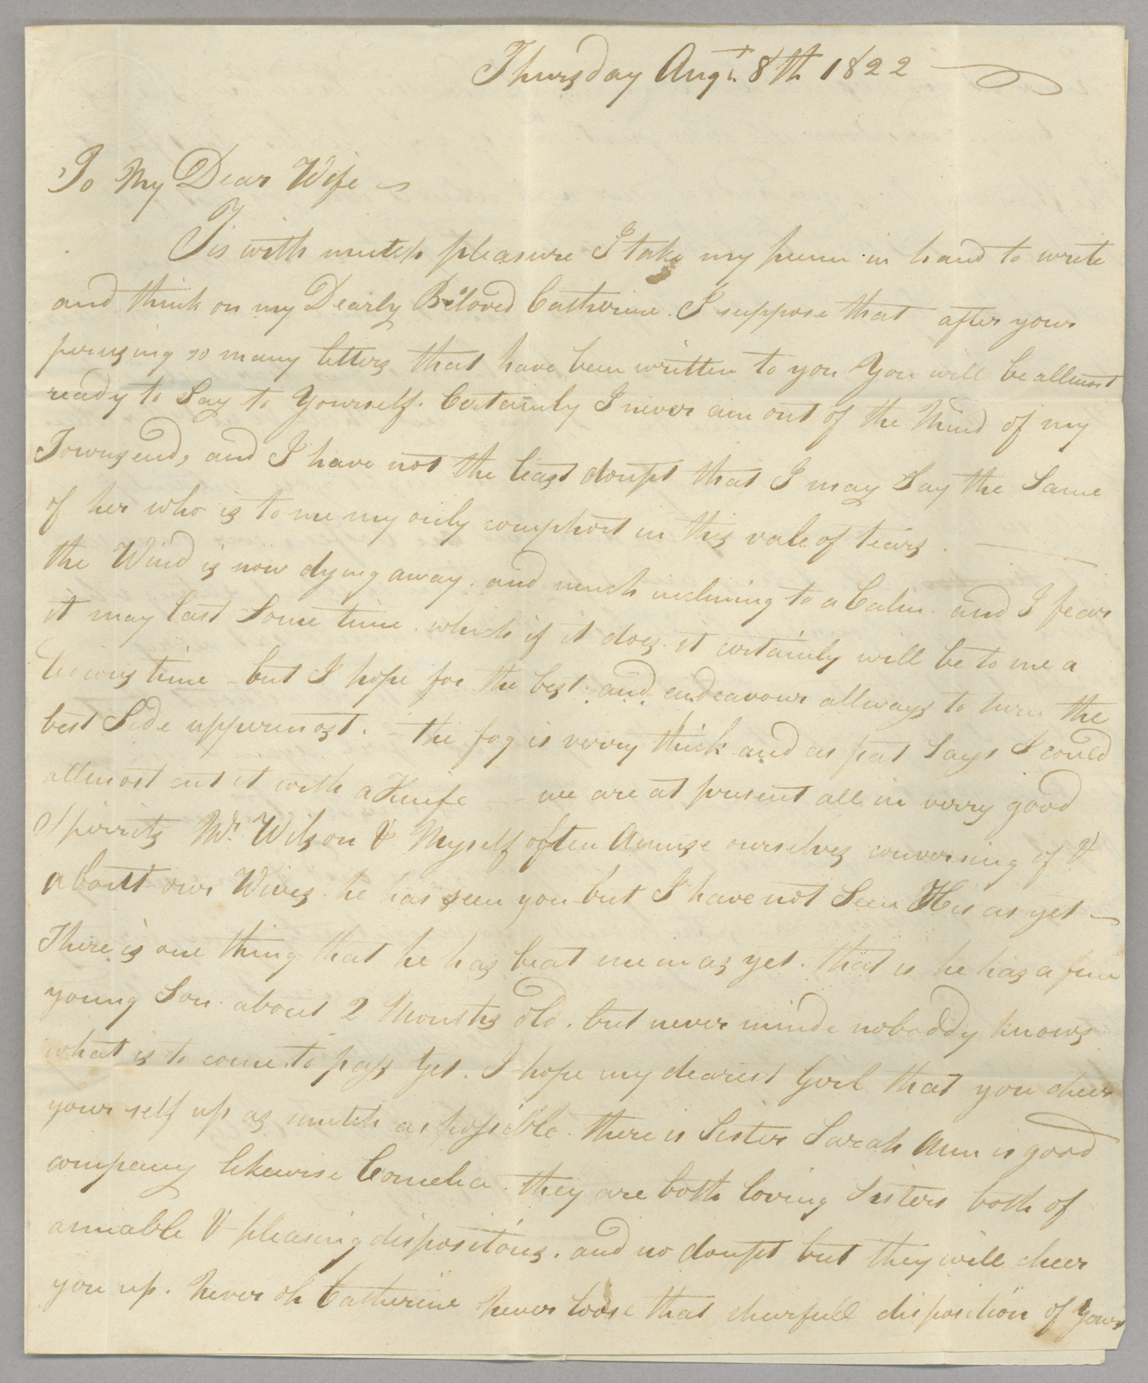 Thursday Augt. 8th 1822
To My Dear Wife
Tis with mutch pleasure I take my penn in hand to write
and think on my Dearly Beloved Catherine. I suppose that after your
perusing so many letters that have been written to you You will be allmost
ready to Say to Yourself. Certainly I never am out of the Mind of my
Townsend, and I have not the least doupt that I may Say the Same
of her who is to me my only comphort in this vale of tears.
the Wind is now dying away. and much inclining to a Calm. and I fear
it may last Some time. which if it does. it certainly will be to me a
time - but I hope for the best. and endeavour allways to turn the
best Side uppermost. the fog is verry thick and as pat Says I could
allmost cut it with a Knife — we are at present all in verry good
Spirrits Mr. Wilson & Myself often Amuse ourselves conversing of &
about our Wives. he has seen you but I have not Seen His as yet —
There is one thing that he has beat me in as yet. that is he has a fine
young Son about 2 Months old. but never minde noboddy knows
what is to come to pass Yet. I hope my dearest Girl that you cheer
your self up as mutch as possible. there is Sister Sarah Ann is good
company likewise Cornelia. they are both loving Sisters both of
amiable & pleasing dispositions. and no doupt but they will cheer
you up. Never oh Catherine Never loose that cheirfull disposition of Yours